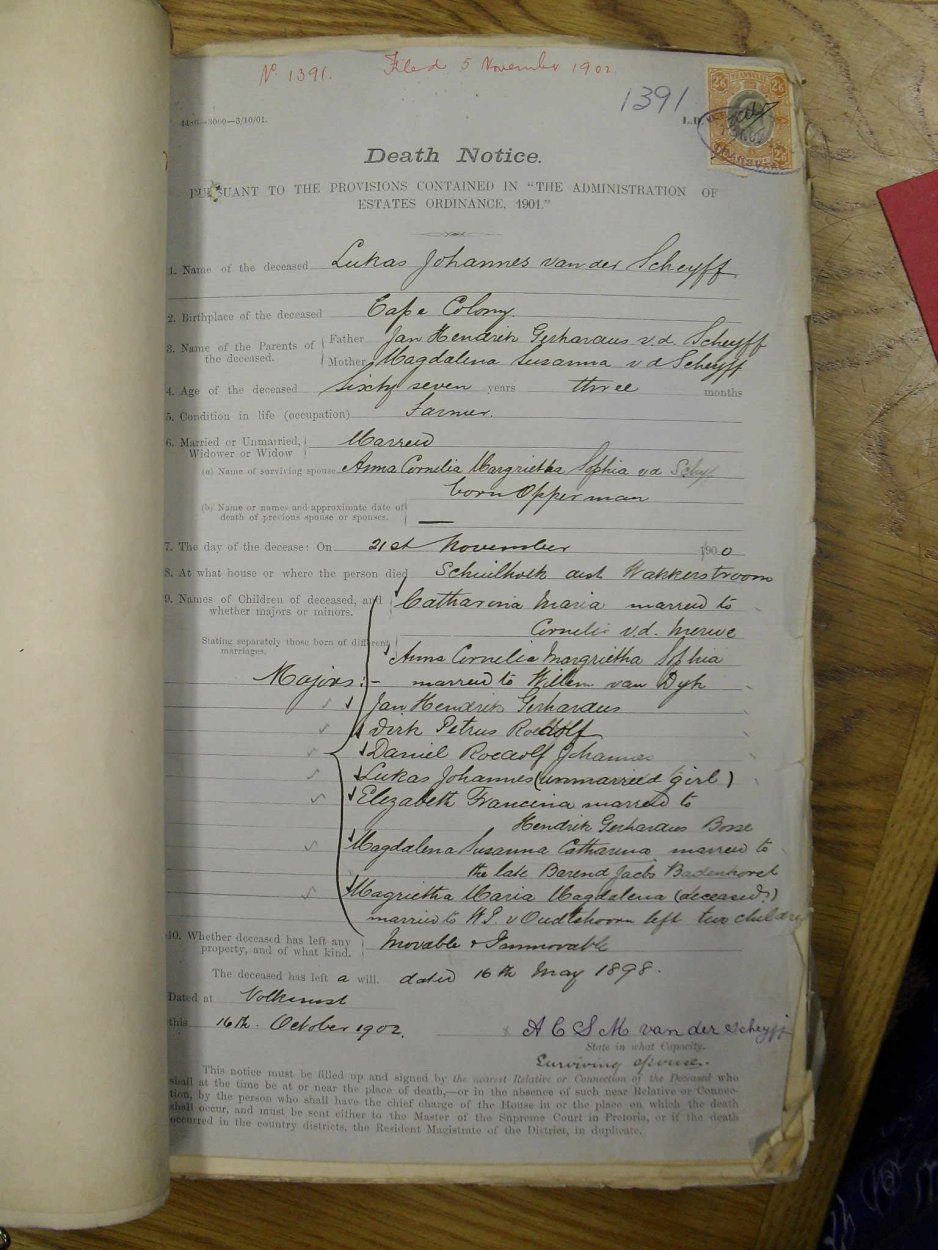 No 1391. Filed 5 November 1902.
1391
4486—3000—3/10/01.
L.D.
TRANSVAAL
2/6 2/6
2/6
Death Notice.
PURSUANT TO THE PROVISIONS CONTAINED IN "THE ADMINISTRATION OF
ESTATES ORDINANCE, 1901."
1. Name of the deceased Lukas Johannes van der Scheyff
2. Birthplace of the deceased Cape Colony.
3. Name of the Parents of the deceased. Father Jan Hendrik Gerhardus v.d. Scheyff
Mother Magdalena Susanna v d Scheyff
4. Age of the deceased Sixty seven years three months
5. Condition in life (occupation) Farmer.
6. Married or Unmarried, Widower or Widow Married
(a) Name of surviving spouse Anna Cornelia Margrietha Sophia v d Schyf
born Opperman
(b) Name or names and approximate date of
death of previous spouse or spouses. —
7. The day of the decease: On 21st November 1900
8. At what house or where the person died Wakkerstroom
9. Names of Children of deceased, and
whether majors or minors.
Catharina Maria married to
Cornelis v.d. Merwe
Stating separately those born of different
marriages.
Anna Cornelia Margrietha Sophia
Majors:- married to Willem van Dyk
Jan Hendrik Gerhardus
Dirk Petrus Roedolf
Daniel Roedolf Johannes
Lukas Johannes (unmarried girl)
Elizabeth Francina married to
Hendrik Gerhardus Bosse
Magdalena Susanna Catharina married to
the late Barend Jacbs Badenhorst
Magrietha Maria Magdalena (deceased)
married to W.P. v Oudtshoorn left two children
10. Whether deceased has left any
property, and of what kind. Movable & Immovable
The deceased has left a will. dated 16th May 1898.
Dated at Volksrust
this 16th. October 1902. x A C S M van der Scheyff
State in what Capacity.
Surviving spouse.
This notice must be filled up and signed by the nearest Relative or Connection of the Deceased who
shall at the time be at or near the place of death,—or in the absence of such near Relative or Connec-
tion, by the person who shall have the chief charge of the House in or the place on which the death
shall occur, and must be sent either to the Master of the Supreme Court in Pretoria, or if the death
occurred in the country districts, the Resident Magistrate of the District, in duplicate.